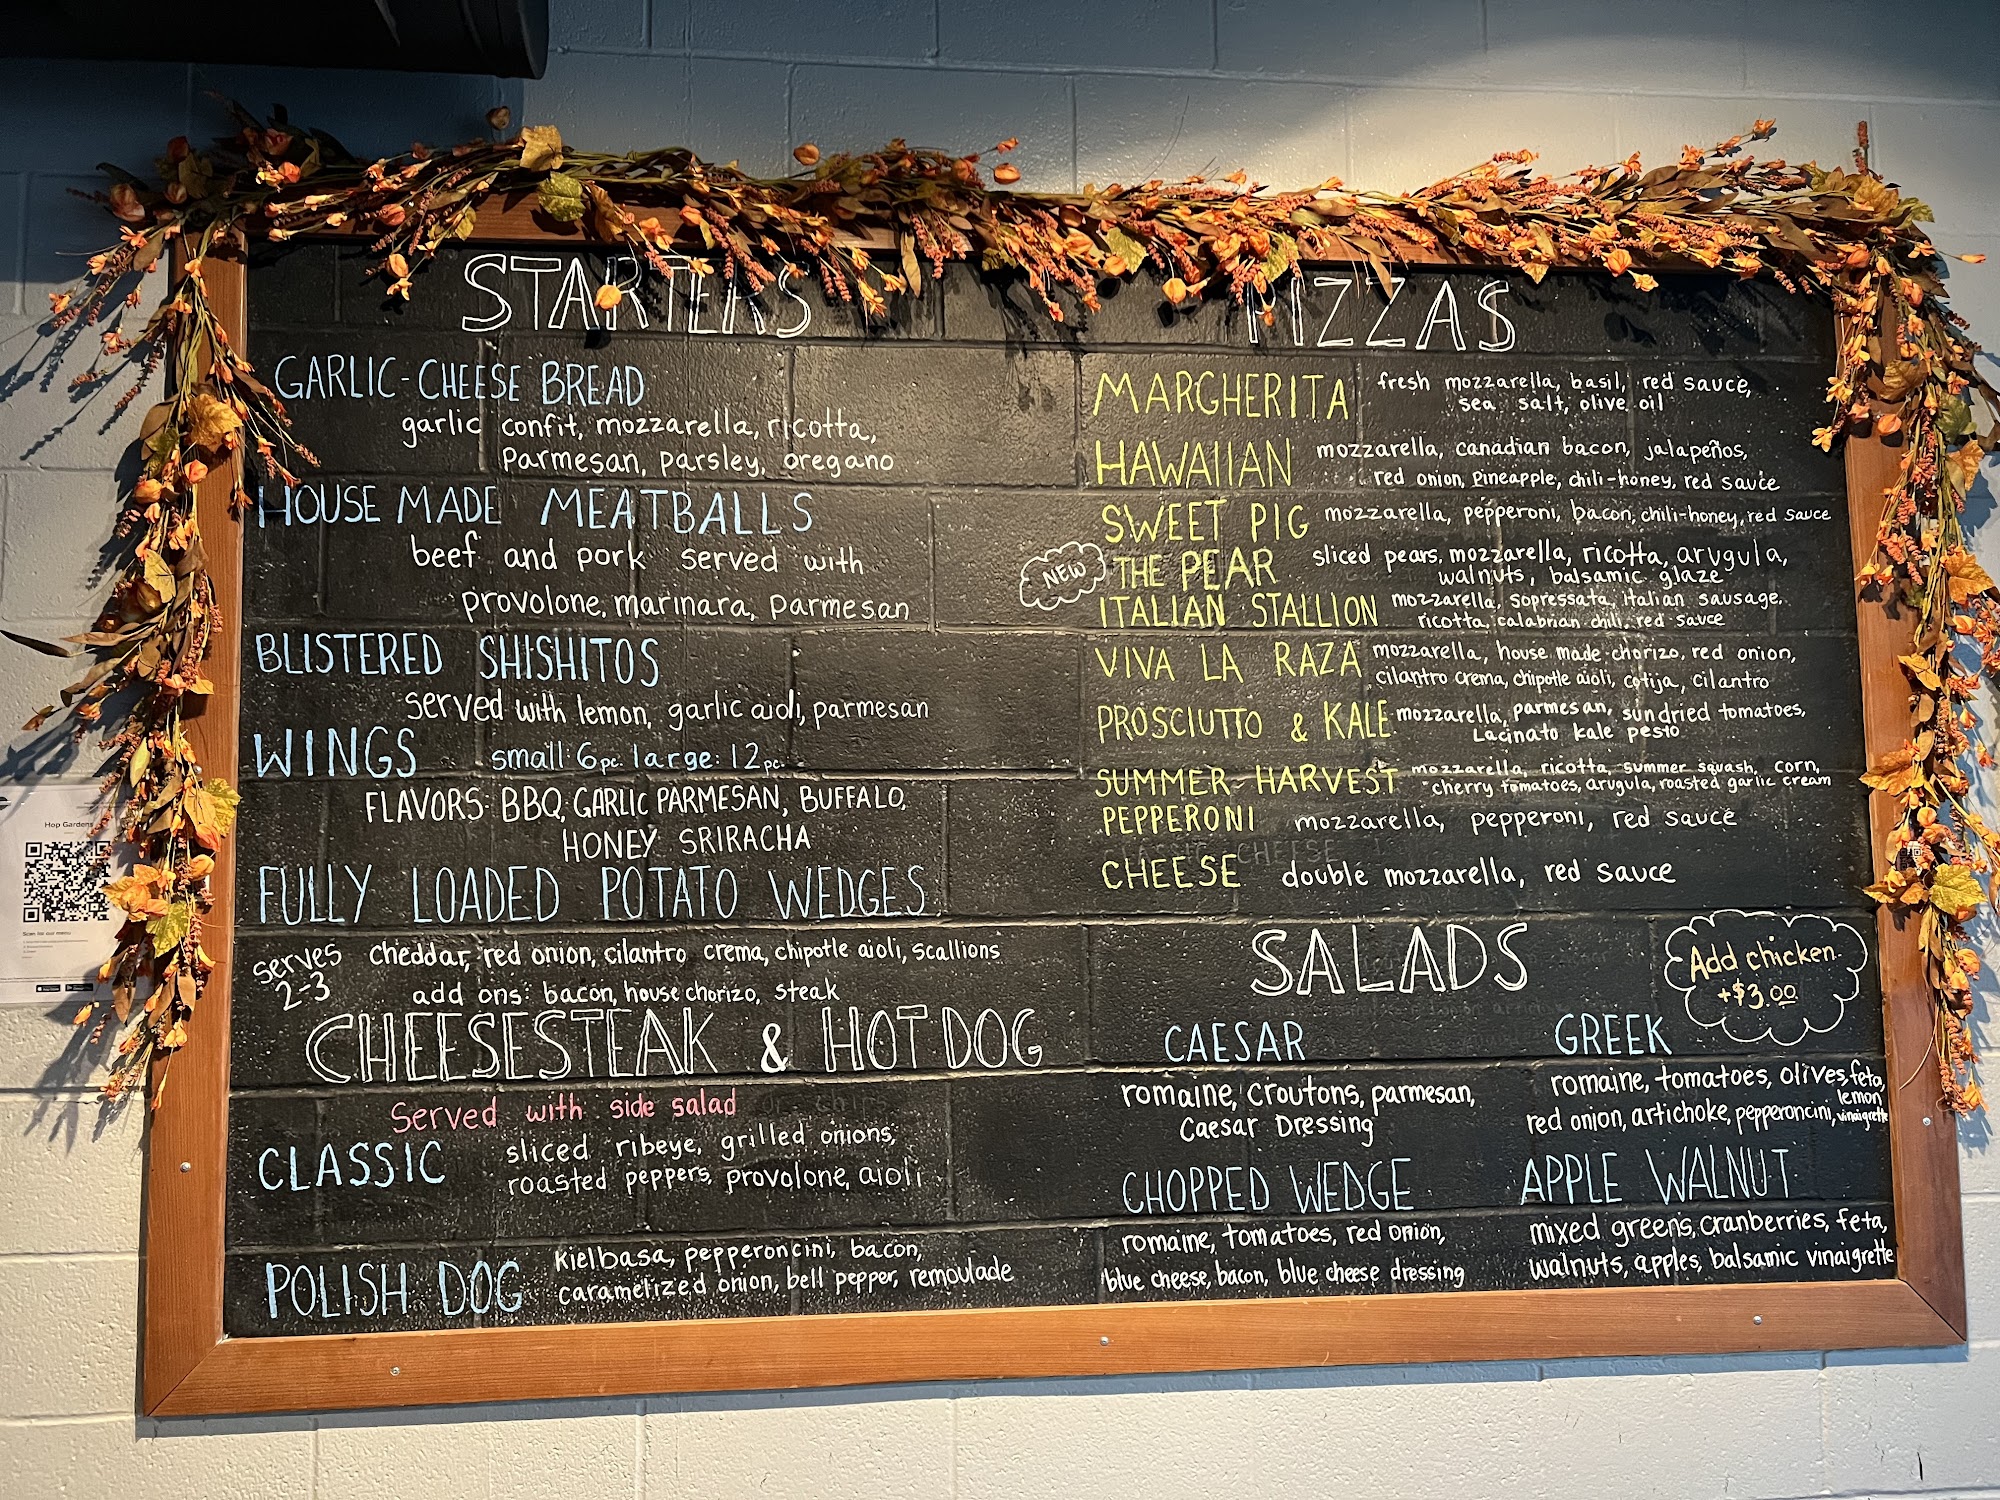 STARTERS
GARLIC-CHEESE BREAD
garlic confit, mozzarella, ricotta,
Parmesan, parsley, oregano
HOUSE MADE MEATBALLS
beef and pork served with
provolone, marinara, parmesan
BLISTERED SHISHITOS
served with lemon, garlic aioli, parmesan
WINGS small: 6pc. large: 12pc.
FLAVORS: BBQ, GARLIC PARMESAN, BUFFALO,
HONEY SRIRACHA
FULLY LOADED POTATO WEDGES
serves 2-3
cheddar, red onion, cilantro crema, chipotle aioli, scallions
add ons: bacon, house chorizo, steak
CHEESESTEAK & HOT DOG
Served with side salad
CLASSIC
sliced ribeye, grilled onions,
roasted peppers, provolone, aioli
POLISH DOG
kielbasa, pepperoncini, bacon,
caramelized onion, bell pepper, remoulade
PIZZAS
MARGHERITA fresh mozzarella, basil, red sauce,
sea salt, olive oil
HAWAIIAN mozzarella, canadian bacon, jalapeños,
red onion, pineapple, chili-honey, red sauce
SWEET PIG mozzarella, pepperoni, bacon, chili-honey, red sauce
NEW THE PEAR sliced pears, mozzarella, ricotta, arugula,
walnuts, balsamic glaze
ITALIAN STALLION mozzarella, sopressata, italian sausage,
ricotta, calabrian chili, red sauce
VIVA LA RAZA mozzarella, house made chorizo, red onion,
cilantro crema, chipotle aioli, cotija, cilantro
PROSCIUTTO & KALE mozzarella, parmesan, sundried tomatoes,
Lacinato kale pesto
SUMMER HARVEST mozzarella, ricotta, summer squash, corn,
cherry tomatoes, arugula, roasted garlic cream
PEPPERONI mozzarella, pepperoni, red sauce
CHEESE double mozzarella, red sauce
SALADS
Add chicken
+$3.00
CAESAR
romaine, croutons, parmesan,
Caesar Dressing
GREEK
romaine, tomatoes, olives, feta,
red onion, artichoke, pepperoncini, lemon vinaigrette
CHOPPED WEDGE
romaine, tomatoes, red onion,
blue cheese, bacon, blue cheese dressing
APPLE WALNUT
mixed greens, cranberries, feta,
walnuts, apples, balsamic vinaigrette
Hop Gardens
Scan for our menu